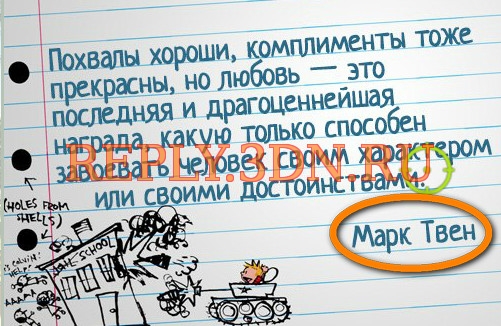 Похвалы хороши, комплименты тоже
прекрасны, но любовь — это
последняя и драгоценнейшая
награда, какую только способен
завоевать человек своим характером
или своими достоинствами.
REPLY.3DN.RU
Марк Твен
(HOLES FROM
SHELLS)
IS CALVIN!
HELP!
AAAAA
SCHOOL